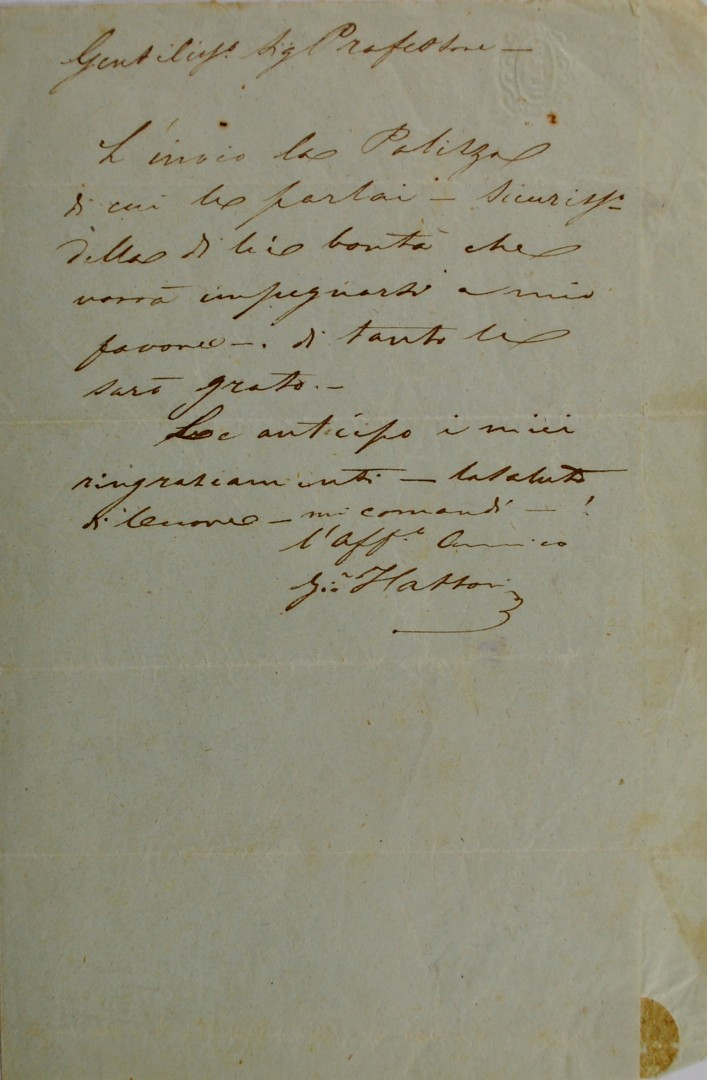 Gentiliss.º Sig Professore —
L'invio la Polizza
di cui le parlai — sicuriss.º
della di lei bontà che
vorrà impegnarsi a mio
favore —. di tanto le
sarò grato. —
Le anticipo i miei
ringraziamenti — la saluto
di cuore — mi comandi — !
l'Aff.º Amico
Gio.